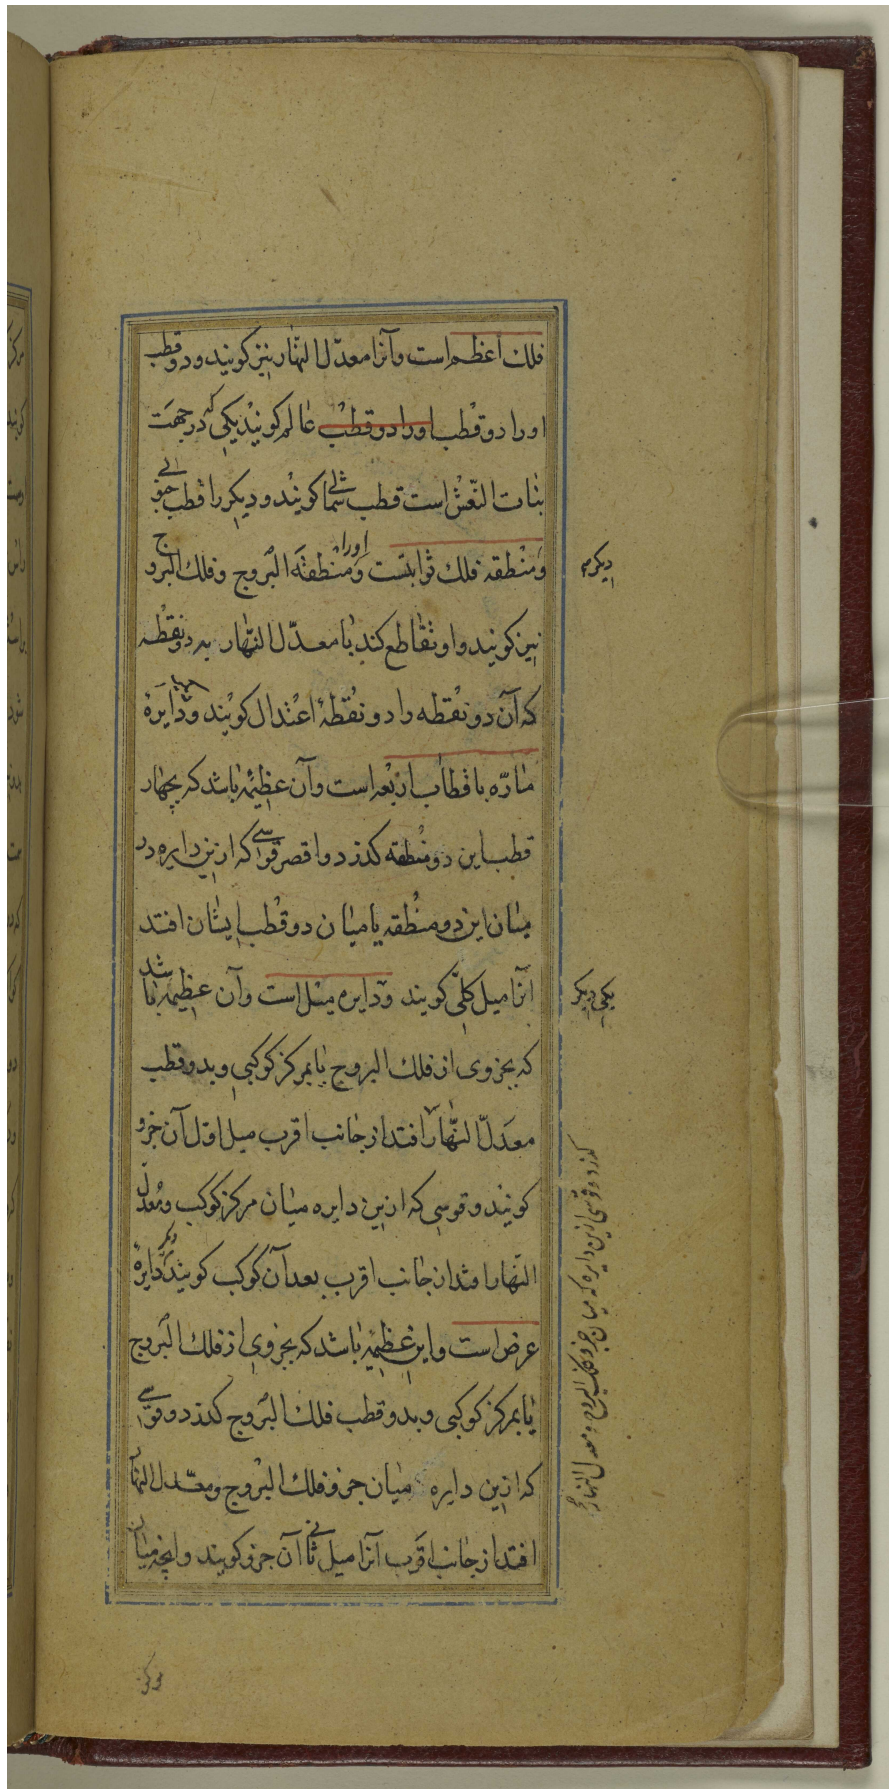 فلك اعظم است وآنرا معدّل النهار نیز کویند و دو قطب
اورا دو قطب اورا دو قطب عالم کویند یکی که در جهت
بنات النعش است قطب شمالی کویند و دیکر را قطب جنوبی
ومنطقه فلك ثوابتست واورا منطقة البروج وفلك البروج
نیز کویند واو تقاطع کند با معدّل النهار به دو نقطه
که آن دو نقطه را دو نقطهٔ اعتدال کویند ودایرهٔ
مارّه باقطاب اربعه است وآن عظیمهٔ باشد که بچهار
قطب این دو منطقه کذرد واقصر قوسی که ازین دایره در
میان این دو منطقه یا میان دو قطب ایشان افتد
انرا میل کلّی کویند ودایره میل است وآن عظیمهٔ باشد
که بجزوی از فلك البروج یا بمرکز کوکبی وبدو قطب
معدّل النهار افتد از جانب اقرب میل اول آن جزو
کویند وقوسی که ازین دایره میان مرکز کوکب ومعدل
النهار افتد از جانب اقرب بعد آن کوکب کویند دیکر دایرهٔ
عرض است واین عظیمهٔ باشد که بجزوی از فلك البروج
یا بمرکز کوکبی وبدو قطب فلك البروج کذرد وقوسی
که ازین دایره میان جزو فلك البروج ومعدّل النهار
افتد از جانب اقرب آنرا میل ثانی آن جزو کویند وانچه میان
دیکر
یکی دیکر
کذرد وقوسی ازین دایره که میان جزو فلك البروج ومعدل النهار
مرکز